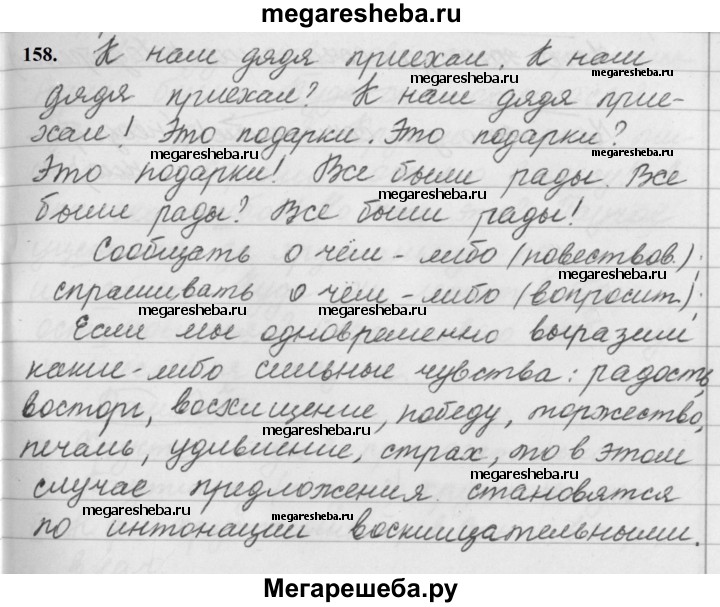 megaresheba.ru
158. К нам дядя приехал. К нам
megaresheba.ru megaresheba.ru
дядя приехал? К нам дядя прие-
хал! Это подарки. Это подарки?
megaresheba.ru megaresheba.ru
Это подарки! Все были рады. Все
megaresheba.ru
были рады? Все были рады!
Сообщать о чём-либо (повествов.);
megaresheba.ru
спрашивать о чём-либо (вопросит.);
megaresheba.ru
Если мы одновременно выразим
какие-либо сильные чувства: радость,
megaresheba.ru
восторг, восхищение, победу, торжество,
megaresheba.ru
печаль, удивление, страх, то в этом
megaresheba.ru
случае предложения становятся
megaresheba.ru
по интонации восклицательными.
Мегарешеба.ру